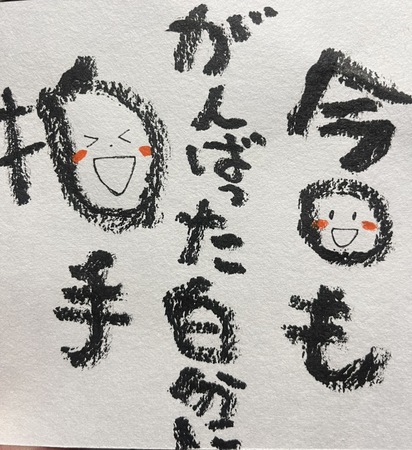 今日も
がんばった自分に
拍手